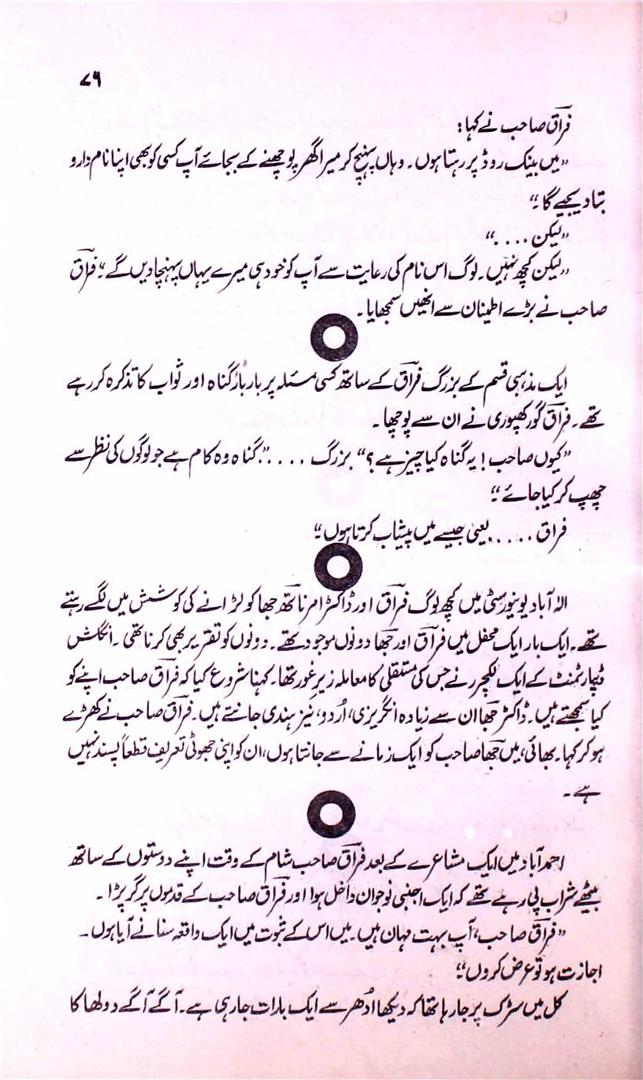 ۷۹
فراق صاحب نے کہا :
”میں بینک روڈ پر رہتا ہوں۔ وہاں پہنچ کر میرا گھر پوچھنے کے بجائے آپ کسی کو بھی اپنا نام دارو
بتا دیجیے گا۔“
”لیکن ....“
”لیکن کچھ نہیں۔ لوگ اس نام کی رعایت سے آپ کو خود ہی میرے یہاں پہنچا دیں گے۔“ فراق
صاحب نے بڑے اطمینان سے انھیں سمجھایا۔
ایک مذہبی قسم کے بزرگ فراق کے ساتھ کسی مسئلہ پر بار بار گناہ اور ثواب کا تذکرہ کر رہے
تھے۔ فراق گورکھپوری نے ان سے پوچھا۔
”کیوں صاحب! یہ گناہ کیا چیز ہے؟“ بزرگ .....”گناہ وہ کام ہے جو لوگوں کی نظر سے
چھپ کر کیا جائے۔“
فراق ..... یعنی جیسے میں پیشاب کرتا ہوں۔“
الٰہ آباد یونیورسٹی میں کچھ لوگ فراق اور ڈاکٹر امر ناتھ جھا کو لڑانے کی کوشش میں لگے رہتے
تھے۔ ایک بار ایک محفل میں فراق اور جھا دونوں موجود تھے۔ دونوں کو تقریر بھی کرنا تھی۔ انگلش
ڈپارٹمنٹ کے ایک لکچرر نے جس کی مستقلی کا معاملہ زیر غور تھا۔ کہنا شروع کیا کہ فراق صاحب اپنے کو
کیا سمجھتے ہیں۔ ڈاکٹر جھا ان سے زیادہ انگریزی، اُردو، نیز ہندی جانتے ہیں۔ فراق صاحب نے کھڑے
ہو کر کہا۔ بھائی، میں جھا صاحب کو ایک زمانے سے جانتا ہوں، ان کو اپنی جھوٹی تعریف قطعاً پسند نہیں
ہے۔
احمد آباد میں ایک مشاعرے کے بعد فراق صاحب شام کے وقت اپنے دوستوں کے ساتھ
بیٹھے شراب پی رہے تھے کہ ایک اجنبی نوجوان داخل ہوا اور فراق صاحب کے قدموں پر گر پڑا۔
”فراق صاحب، آپ بہت مہان ہیں۔ میں اس کے ثبوت میں ایک واقعہ سنانے آیا ہوں۔
اجازت ہو تو عرض کروں“؛
کل میں سڑک پر جا رہا تھا کہ دیکھا اُدھر سے ایک بارات جا رہی ہے۔ آگے آگے دولھا کا